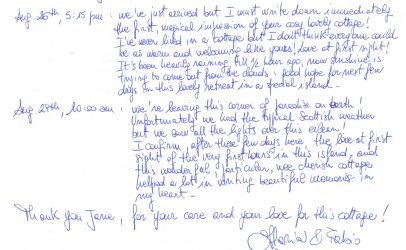 Aug 25th, 5:15 pm : we've just arrived but I must write down immediately
the first, magical impression of your cosy lovely cottage!
I've never lived in a cottage but I don't think everyone could
be as warm and welcoming like yours! Love at first sight!
It's been heavily raining till ½ hour ago, now sunshine is
trying to come out from the clouds : good hope for next few
days in this lovely retreat in a special island -
Aug 27th, 10:00 am : we're leaving this corner of paradise on Earth!
Unfortunately we had the typical Scottish weather
but we saw all the lights over this eileen!
I confirm, after these few days here the love at first
sight of the very first hours in this island, and
this wonderful particular, wee cherish cottage
helped a lot in writing beautiful memories in
my heart -
Thank you Jane, for your care and your love for this cottage!
& Fabio